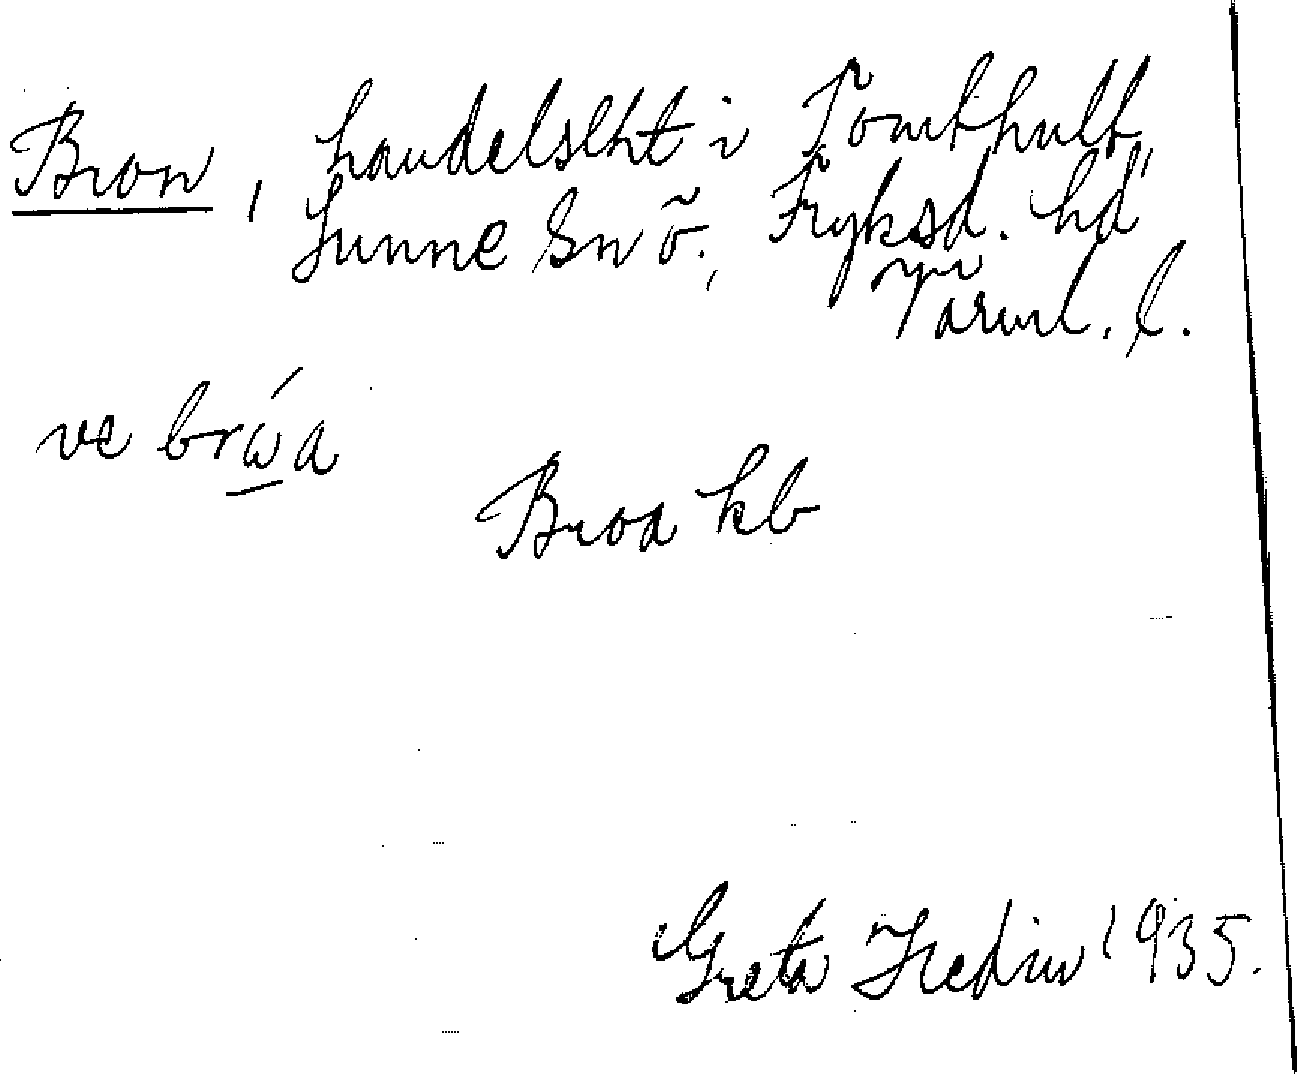 Bron, handelslht i Tomthult,
Sunne sn o., Fryksd. hd
Värml. l.
ve brώa
Broa kb
Greta Hedin 1935.